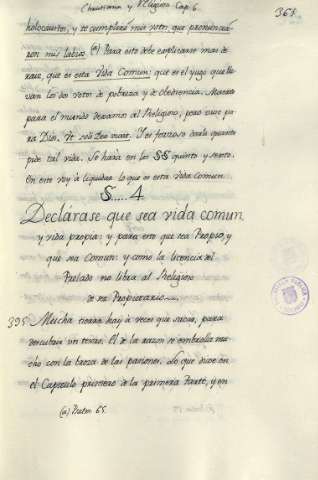 Christiana y Religiosa Cap. 6.
361
holocaustos, y te cumpliré mis votos, que pronunciá-
ron mis labios. (a) Para esto debe explicarse mas de
raiz, que es esta Vida Comun: que es el yugo que lle-
van los dos votos de pobreza y de obediencia. Muera
para el mundo decíamos al Religioso, pero viva pa-
ra Dios. Y es forzoso darle quanto
pide tal vida. Se hará en los §§ quinto y sexto.
En este voy á liquidar lo que es esta vida comun.
§.... 4
Declárase que sea vida comun
y vida propia: y para esto que sea Propio, y
que sea Comun: y como la licencia del
Prelado no libra al Religioso
de ser Propietario.
395 Mucha tierra hay á veces que sacar, para
descubrir un tesoro. El de la razon se embrolla mu-
cho con la broza de las pasiones. Lo que dixe en
el Capitulo primero de la primera Parte, y en
(a) Psalm. 65.